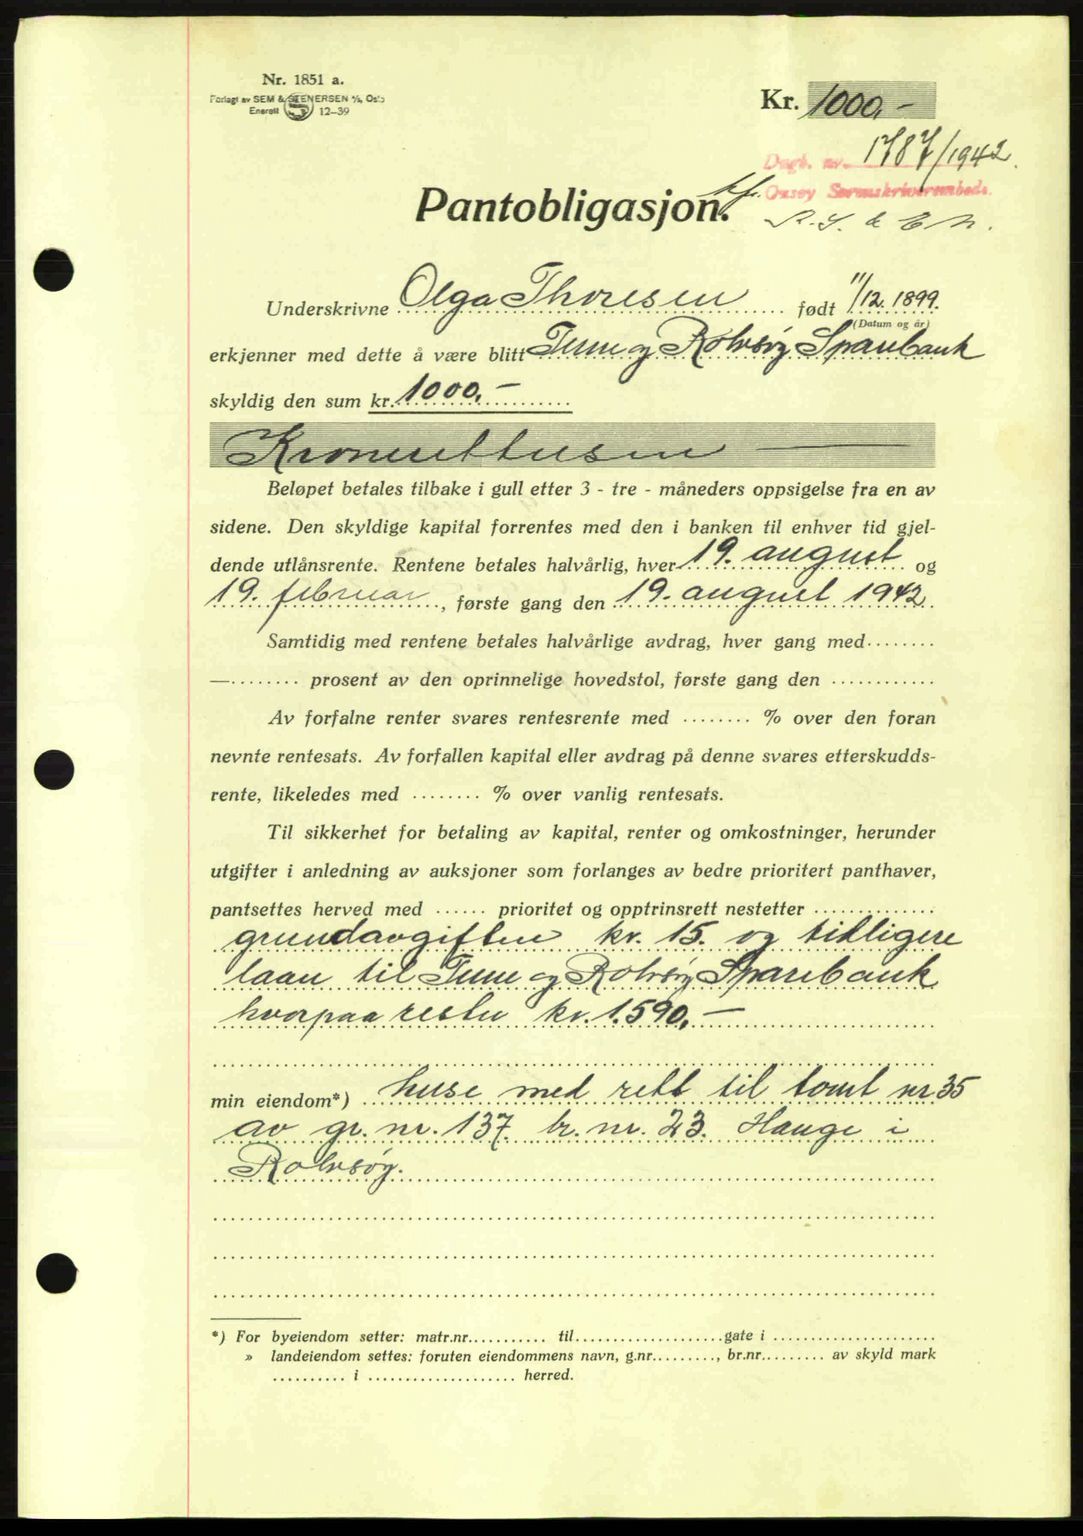 Nr. 1851 a.
Forlagt av SEM & STENERSEN A/S, Oslo
Enerett 12-39
Kr. 1000,-
Dagb. nr. 1787/1942.
Onsøy Sorenskriverembede.
Pantobligasjon.
Underskrivne Olga Thoresen født 11/12. 1899.
(Datum og år)
erkjenner med dette å være blitt Tune og Rolvsøy Sparebank
skyldig den sum kr. 1000,-
Kroneretttusen
Beløpet betales tilbake i gull etter 3 - tre - måneders oppsigelse fra en av
sidene. Den skyldige kapital forrentes med den i banken til enhver tid gjel-
dende utlånsrente. Rentene betales halvårlig, hver 19. august og
19. februar, første gang den 19. august 1942
Samtidig med rentene betales halvårlige avdrag, hver gang med
— prosent av den oprinnelige hovedstol, første gang den
Av forfalne renter svares rentesrente med % over den foran
nevnte rentesats. Av forfallen kapital eller avdrag på denne svares etterskudds-
rente, likeledes med % over vanlig rentesats.
Til sikkerhet for betaling av kapital, renter og omkostninger, herunder
utgifter i anledning av auksjoner som forlanges av bedre prioritert panthaver,
pantsettes herved med prioritet og opptrinsrett nestetter
grundavgiften kr. 15. og tidligere
laan til Tune og Rolvsøy Sparebank
hvorpaa rester kr. 1.590,-
min eiendom*) huse med rett til tomt nr. 35
av gr. nr. 137. br. nr. 23. Hauge i
Rolvsøy.
*) For byeiendom setter: matr.nr. til gate i
» landeiendom settes: foruten eiendommens navn, g.nr., br.nr. av skyld mark
i herred.